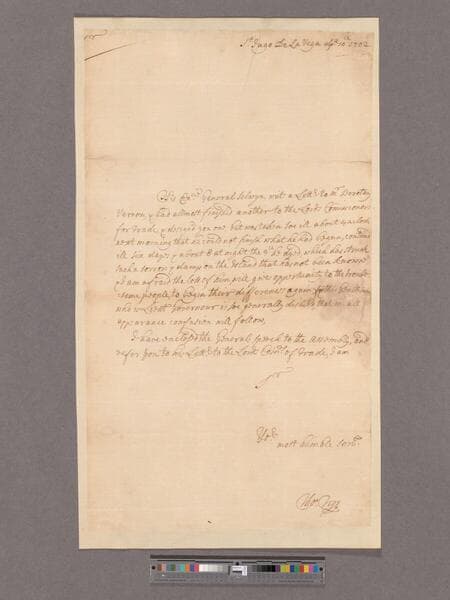 Sr
St Jago De La Vega Apr 10th 1702
His Exc: General Selwyn writ a Letr to Mr Secretary
Vernon & had allmost finished another to the Lords Commissrs
for Trade, & desired you one but was taken soe ill about 4 a clock
next morning that he could not finish what he had begun, continued
ill six days & about 8 at night the dyed which has struck
such a sorrow & damp on the Island that has not been known
& I am afraid the loss of him will give opportunity to the
some people to begin their differences again for
who is Leivt Governour is soe generally that in all
appearance confusion will follow,
I have enclosed the Generals speech to the Assembly, and
refer you to my Letr to the Lords Comrs of Trade, I am
Sr
Yor
most humble Servt